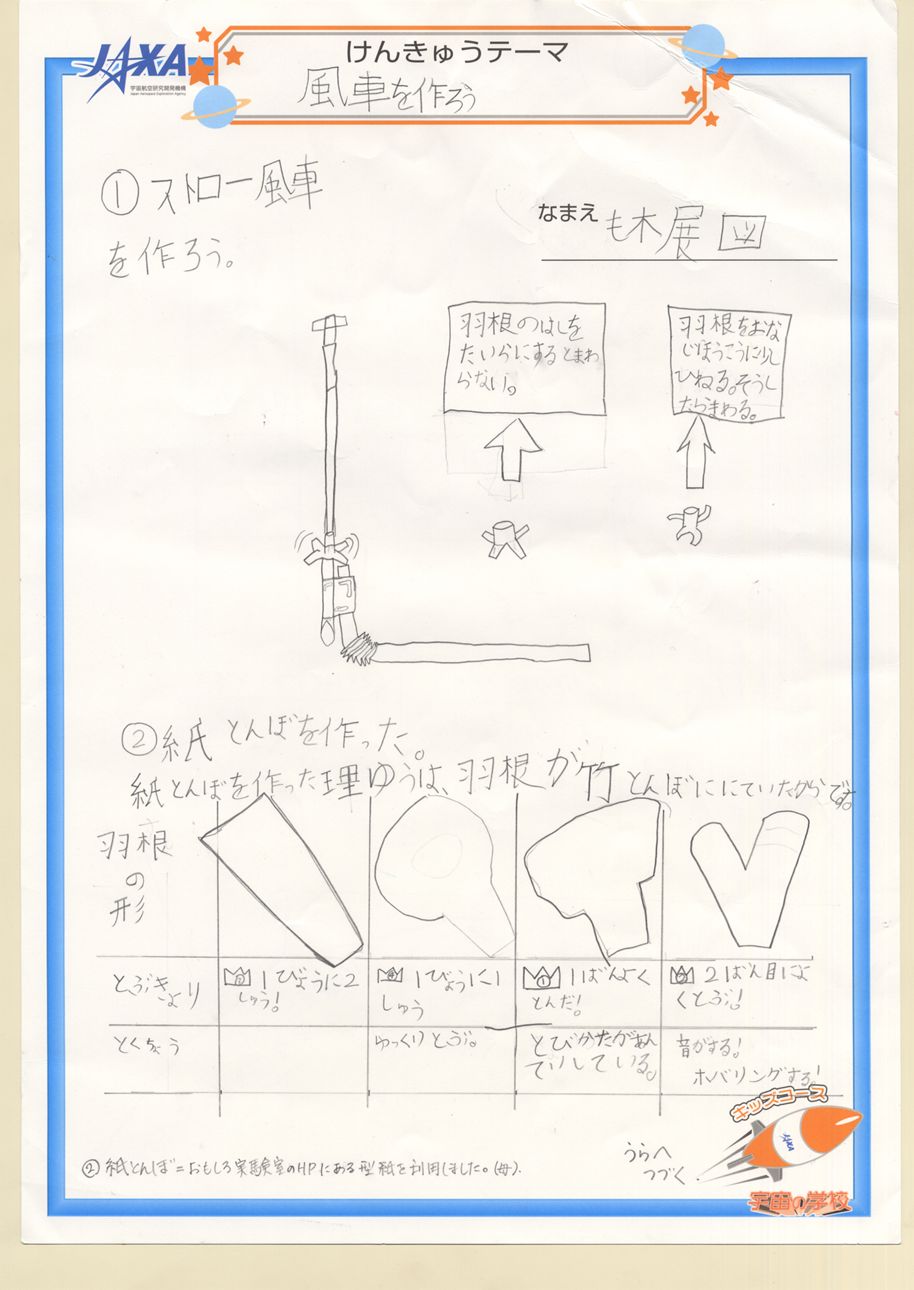 JAXA
宇宙航空研究開発機構
Japan Aerospace Exploration Agency
けんきゅうテーマ
風車を作ろう
①ストロー風車
を作ろう。
なまえ
も木展図
羽根のはしを
たいらにするとまわ
らない。
羽根をおな
じほうこうに少し
ひねる。そうし
たらまわる。
②紙とんぼを作った。
紙とんぼを作った理ゆうは、羽根が竹とんぼににていたからです。
羽根
の
形
とぶきょり
②1びょうに2
しゅう!
1びょうに1
しゅう
①1ばんよく
とんだ!
2ばん目によ
くとぶ!
とくちょう
ゆっくりとぶ。
とびかたがあん
ていしている。
音がする!
ホバリングする!
②紙とんぼ=おもしろ実験室のHPにある型紙を利用しました。(母).
うらへ
つづく
キッズコース
JAXA
宇宙の学校